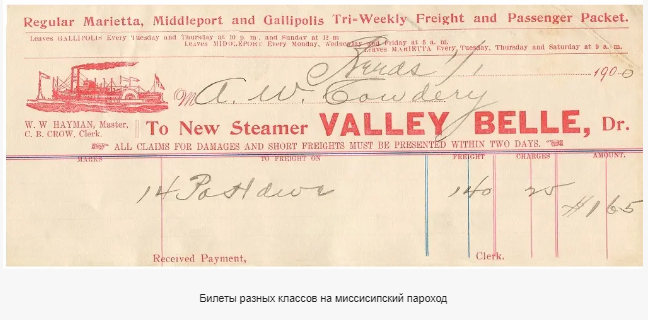 Regular Marietta, Middleport and Gallipolis Tri-Weekly Freight and Passenger Packet.
Leaves GALLIPOLIS Every Tuesday and Thursday at 10 p. m. and Sunday at 12 m
Leaves MIDDLEPORT Every Monday, Wednesday and Friday at 5 a. m.
Leaves MARIETTA Every Tuesday, Thursday and Saturday at 9 a. m.
1/1 1900
M A. W. Cowdery
W. W. HAYMAN, Master,
C. B. CROW, Clerk.
To New Steamer VALLEY BELLE, Dr.
ALL CLAIMS FOR DAMAGES AND SHORT FREIGHTS MUST BE PRESENTED WITHIN TWO DAYS.
MARKS TO FREIGHT ON FREIGHT CHARGES AMOUNT.
14 140 25 $165
Received Payment, Clerk.
Билеты разных классов на миссисипский пароход